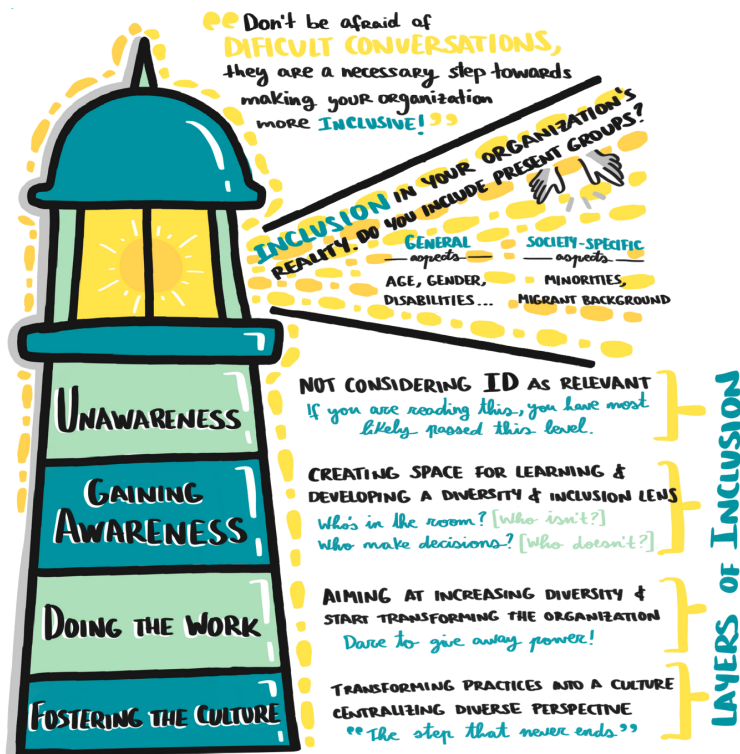 Don't be afraid of
DIFICULT CONVERSATIONS,
they are a necessary step towards
making your organization
more INCLUSIVE!
INCLUSION IN YOUR ORGANIZATION'S
REALITY. DO YOU INCLUDE PRESENT GROUPS?
GENERAL
aspects
AGE, GENDER,
DISABILITIES...
SOCIETY-SPECIFIC
aspects
MINORITIES,
MIGRANT BACKGROUND
UNAWARENESS
NOT CONSIDERING ID AS RELEVANT
If you are reading this, you have most
likely passed this level.
GAINING
AWARENESS
CREATING SPACE FOR LEARNING &
DEVELOPING A DIVERSITY & INCLUSION LENS
Who's in the room? [Who isn't?]
Who make decisions? [Who doesn't?]
DOING THE WORK
AIMING AT INCREASING DIVERSITY &
START TRANSFORMING THE ORGANIZATION
Dare to give away power!
FOSTERING THE CULTURE
TRANSFORMING PRACTICES INTO A CULTURE
CENTRALIZING DIVERSE PERSPECTIVE
"The step that never ends"
LAYERS OF INCLUSION